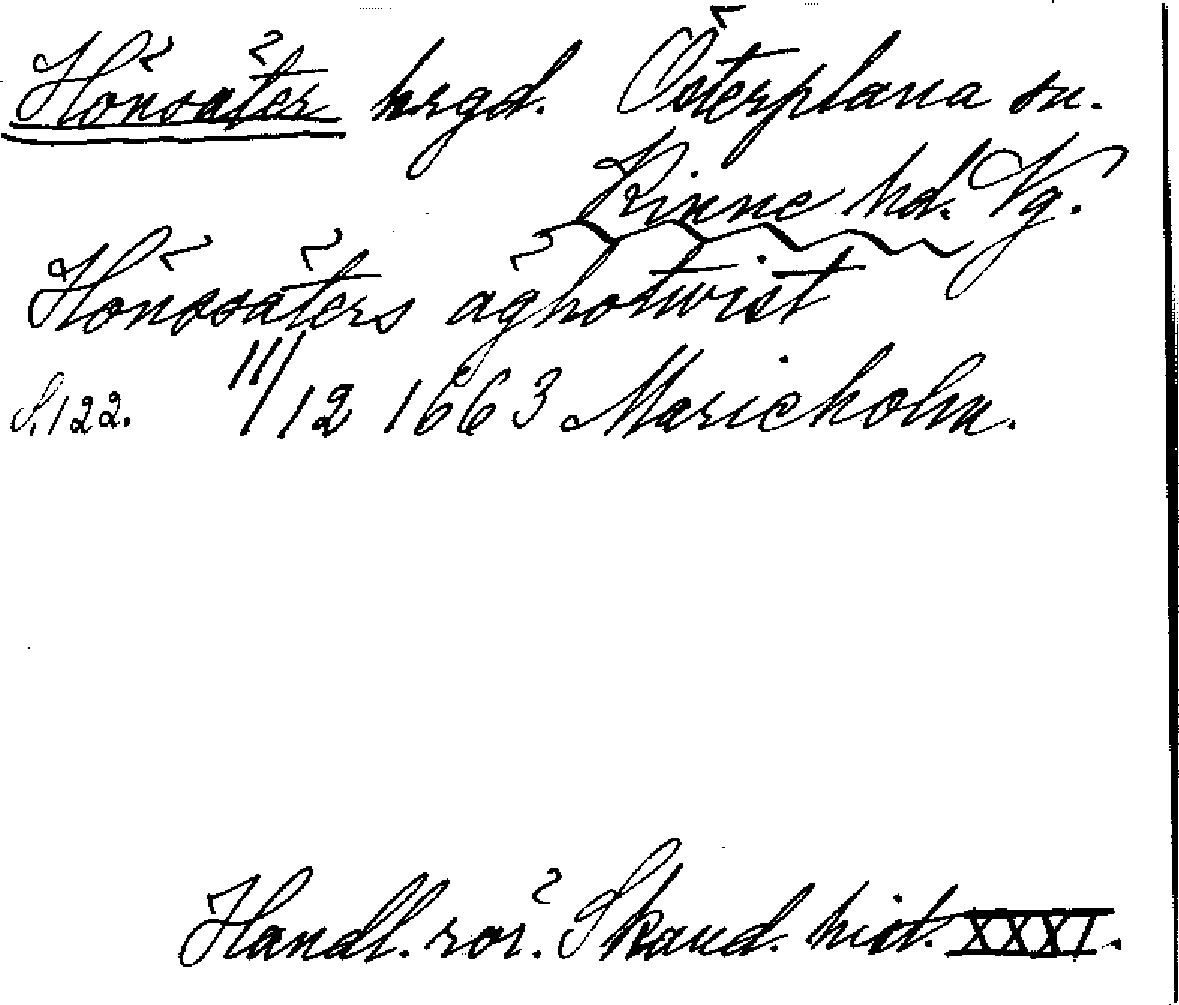 Hönsäter hrgd. Österplana sn.
Kinne hd. Vg.
Hönssäters äghotwist
S. 122. 111/12 1663 Marieholm.
Handl. rör. Skand. hist. XXXI.